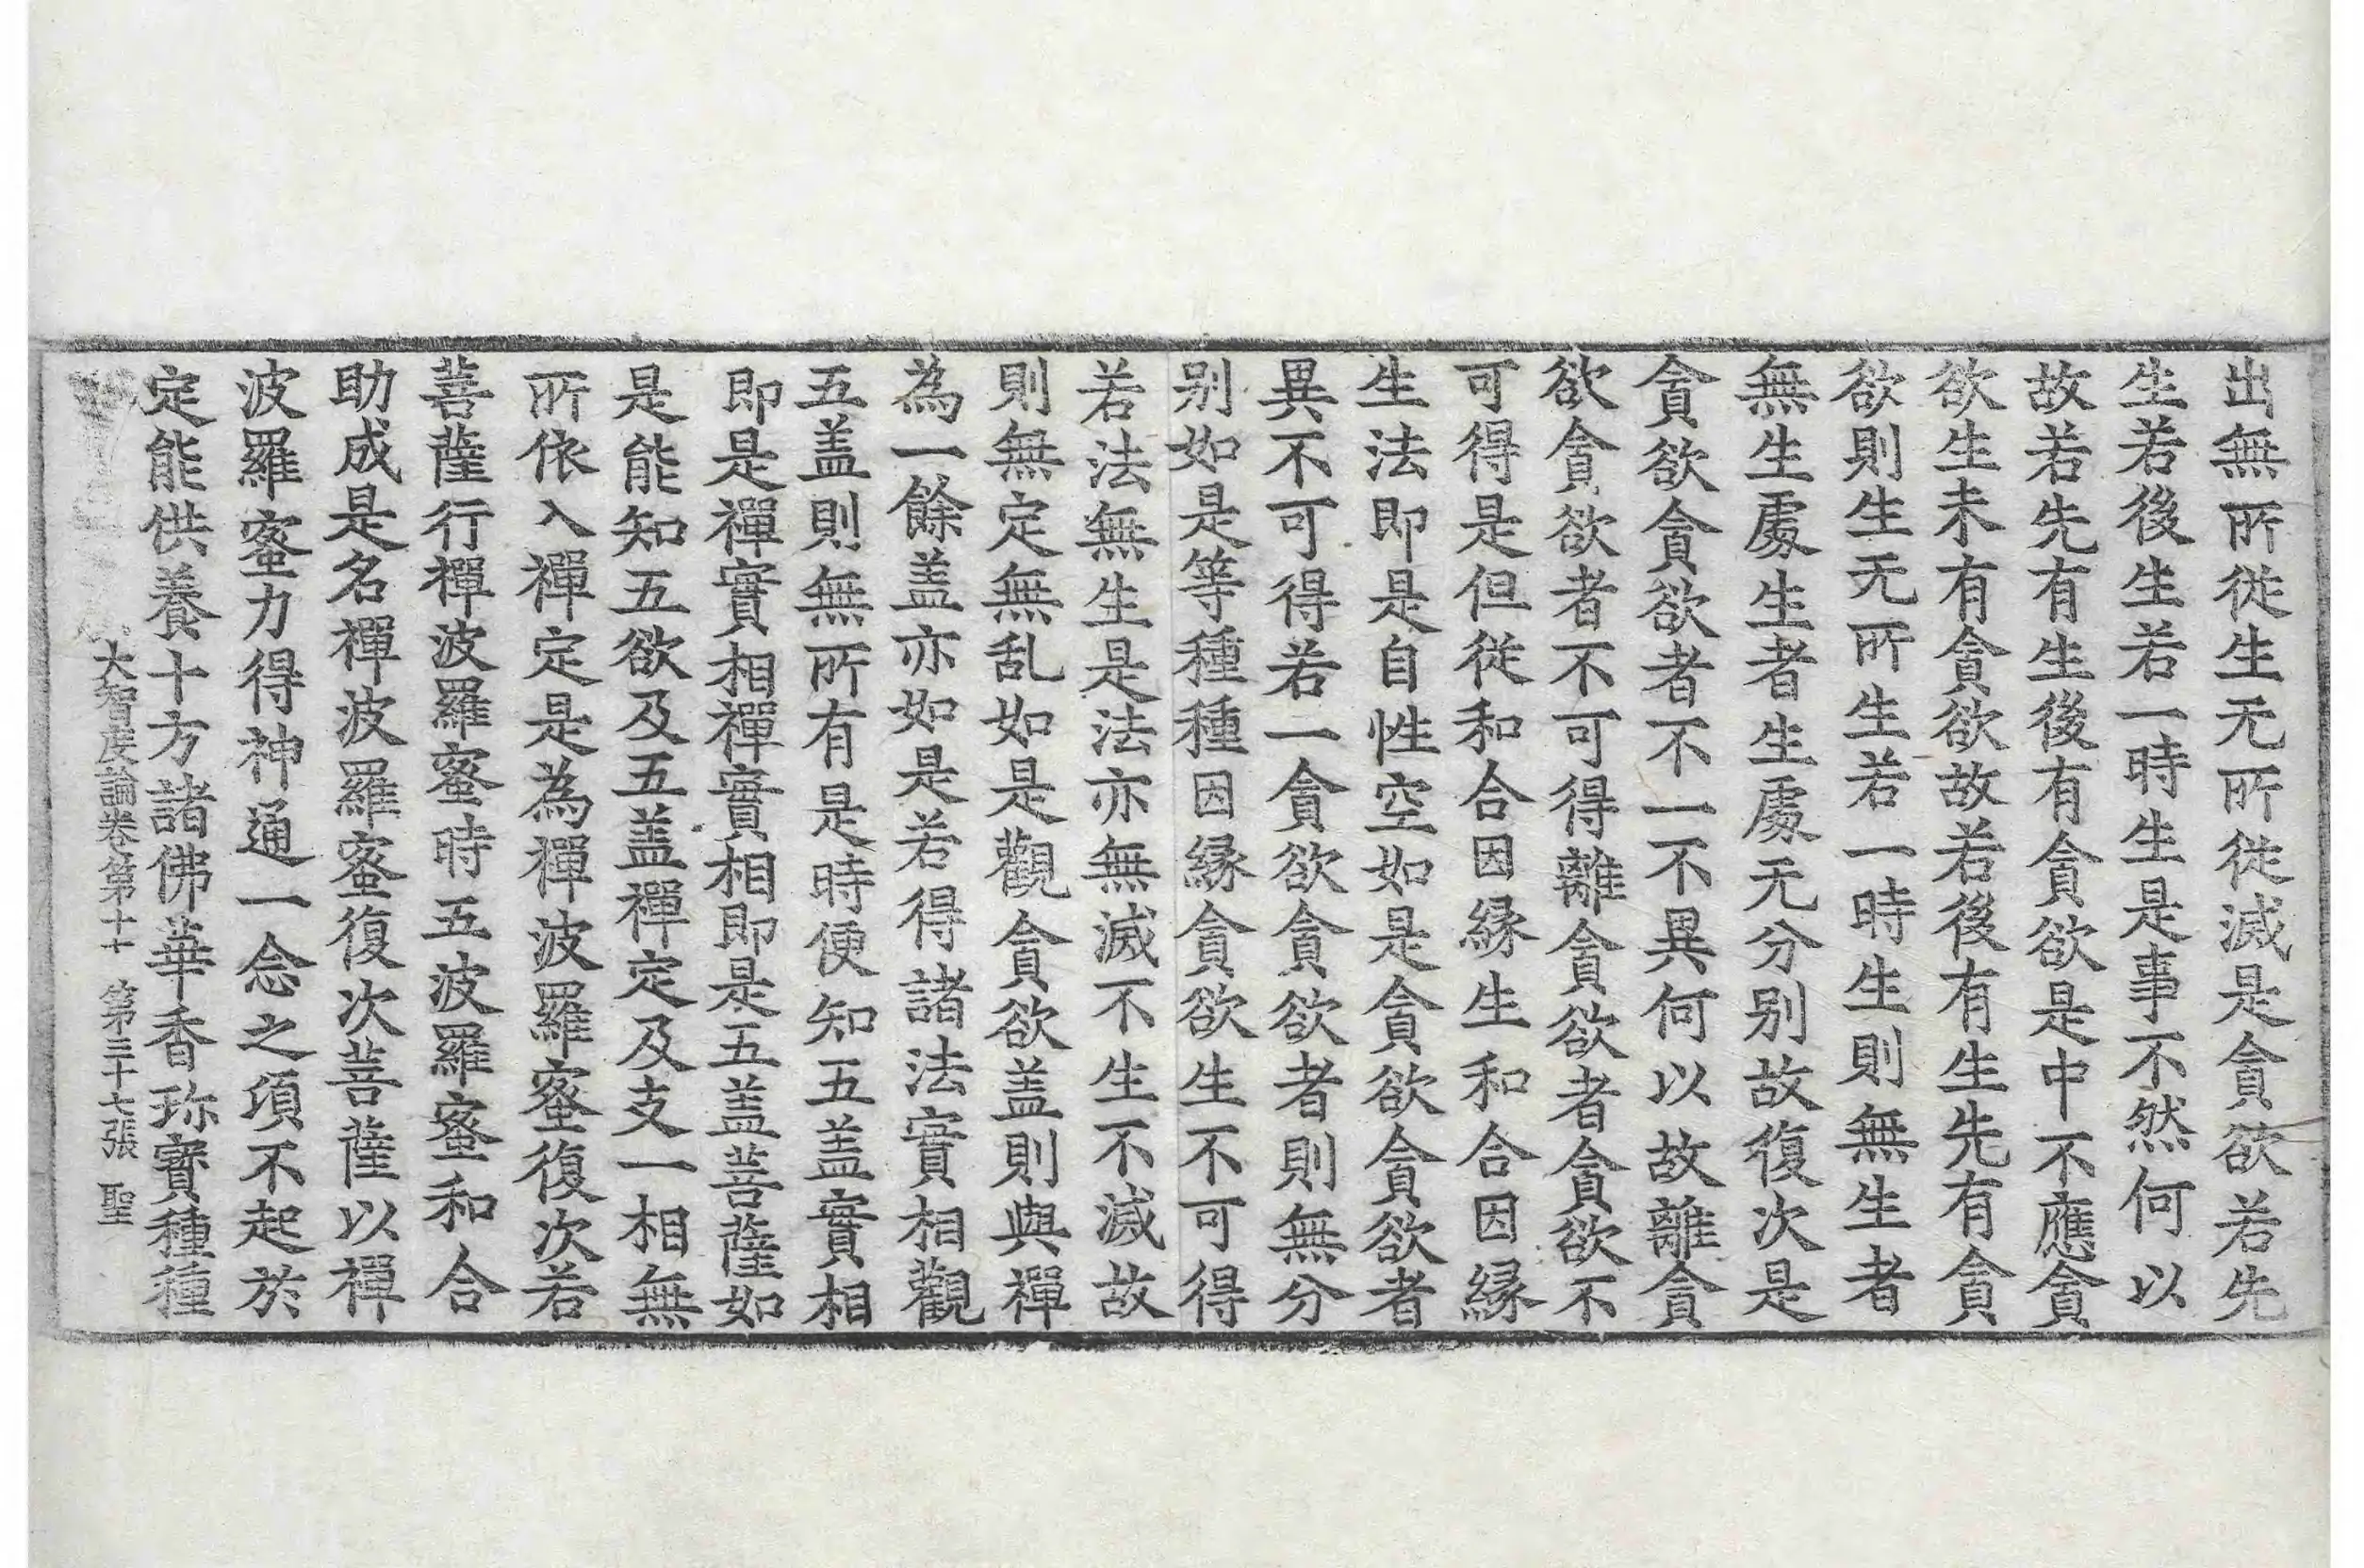 出無所從生无所從滅是貪欲若先
生若後生若一時生是事不然何以
故若先有生後有貪欲是中不應貪
欲生未有貪欲故若後有生先有貪
欲則生无所生若一時生則無生者
無生處生者生處无分别故復次是
貪欲貪欲者不一不異何以故離貪
欲貪欲者不可得離貪欲者貪欲不
可得是但從和合因緣生和合因緣
生法即是自性空如是貪欲貪欲者
異不可得若一貪欲貪欲者則無分
别如是等種種因緣貪欲生不可得
若法無生是法亦無滅不生不滅故
則無定無乱如是觀貪欲盖則與禪
為一餘盖亦如是若得諸法實相觀
五盖則無所有是時便知五盖實相
即是禪實相禪實相即是五盖菩薩如
是能知五欲及五盖禪定及支一相無
所依入禪定是為禪波羅蜜復次若
菩薩行禪波羅蜜時五波羅蜜和合
助成是名禪波羅蜜復次菩薩以禪
波羅蜜力得神通一念之頃不起於
定能供養十方諸佛華香珎寳種種
大智度論卷第十七 第三十七張 聖